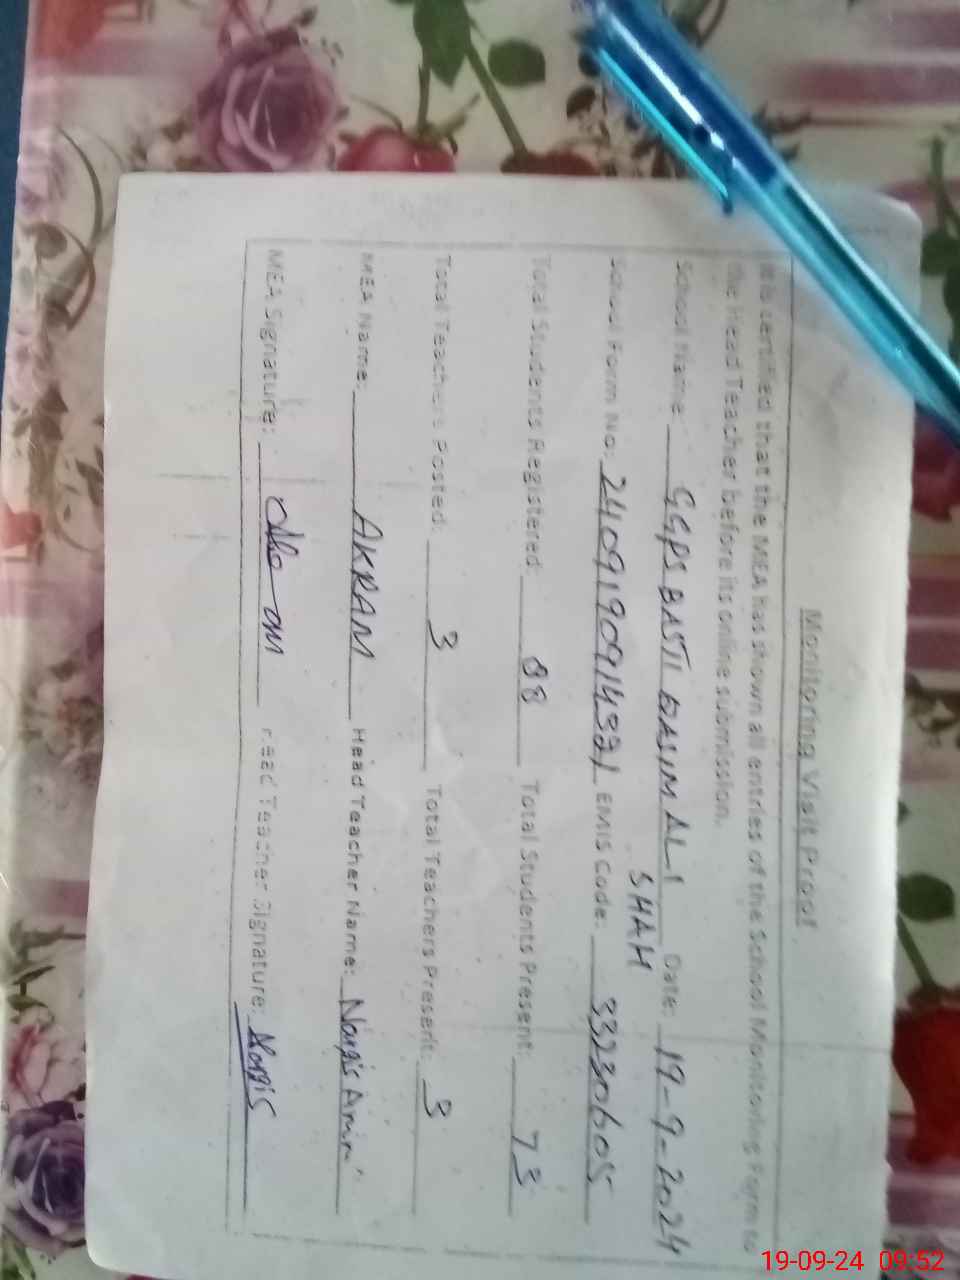 Monitoring Visit Proof
It is certified that the MEA has shown all entries of the School Monitoring Form to
the Head Teacher before its online submission.
School Name: GGPS BASTI QASIM ALI SHAH Date: 19-9-2024
School Form No: EMIS Code: 33230605
Total Students Registered: 88 Total Students Present: 73
Total Teachers Posted: 3 Total Teachers Present: 3
MEA Name: AKRAM Head Teacher Name: Nargis Amin
MEA Signature: Head Teacher Signature: Nargis
19-09-24 09:52